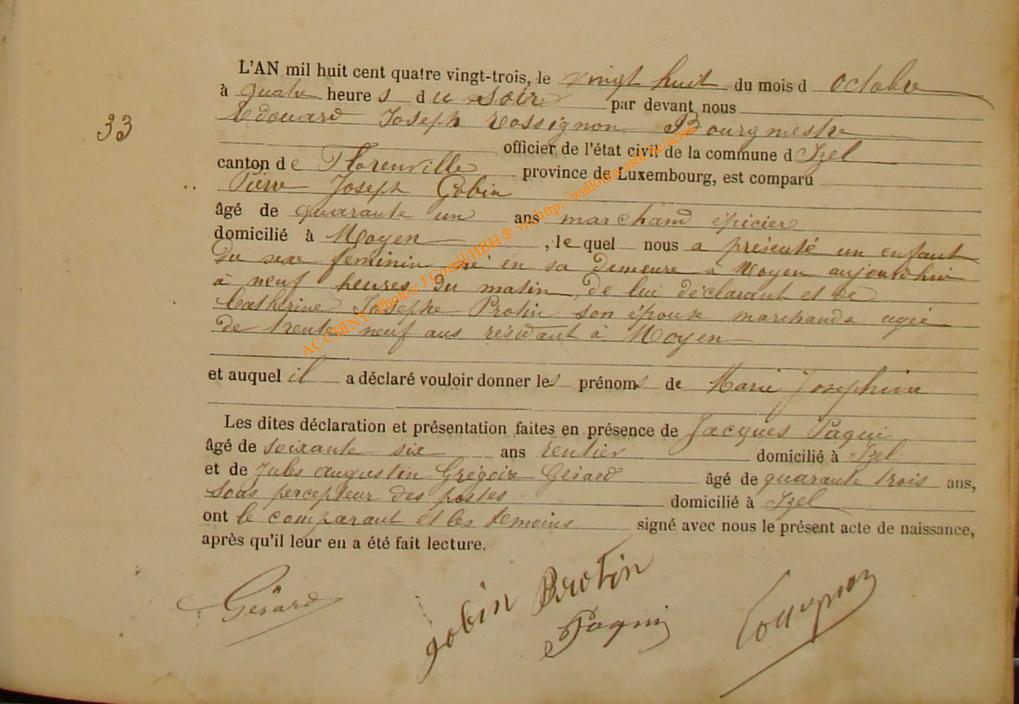 L'AN mil huit cent quatre vingt-trois, le vingt huit du mois d octobre
à quatre heure s d u soir par devant nous
Edouard Joseph Rossignon Bourgmestre
33
officier de l'état civil de la commune d Izel
canton de Florenville province de Luxembourg, est comparu
Pierre Joseph Gobin
âgé de quarante un ans marchand épicier
domicilié à Moyen , le quel nous a présenté un enfant
du sexe feminin né en sa demeure à Moyen aujourd'hui
à neuf heures du matin, de lui déclarant et de
Catherine Josephe Protin son épouse marchande agée
de trente neuf ans résidant à Moyen
et auquel il a déclaré vouloir donner les prénoms de Marie Josephine
Les dites déclaration et présentation faites en présence de Jacques Paqui
âgé de soixante six ans rentier domicilié à Izel
et de Jules Augustin Grégoire Gérard âgé de quarante trois ans,
sous percepteur des postes domicilié à Izel
ont le comparant et les temoins signé avec nous le présent acte de naissance,
après qu'il leur en a été fait lecture.
Gérard gobin Protin Paqui Rossignon